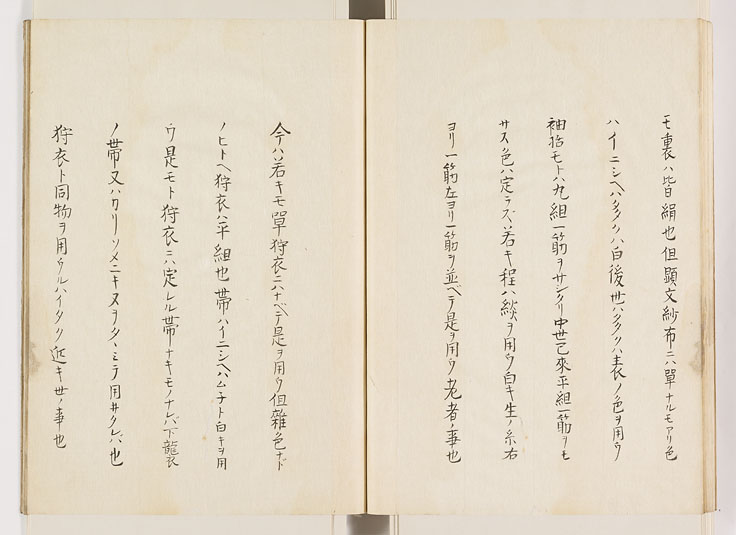 モ裏ハ皆絹也但顕文紗布ニハ單ナルモアリ色
ハイニシヘハタヾノハ白後世ハタヾクハ表ノ色ヲ用ウ
袖括モトハ丸組一筋ヲサシクリ中世已來平組一筋ヲモ
サス色ハ定ラズ若キ程ハ緂ヲ用ウ白キ生ノ糸右
ヨリ一筋左ヨリ一筋ヲ並ベテ是ヲ用ウ老者ノ事也
今ハ若キモ單狩衣ニハナベテ是ヲ用ウ但雜色ナド
ノヒトヘ狩衣ハ平組也帯ハイニシヘハムチト白キヲ用
ウ是モト狩衣ニハ定レル帯ナキモノナレバ下襲衣
ノ帯又ハカリソメニキヌヲタヽミテ用井タレバ也
狩衣ト同物ヲ用ウルハイタク近キ世ノ事也